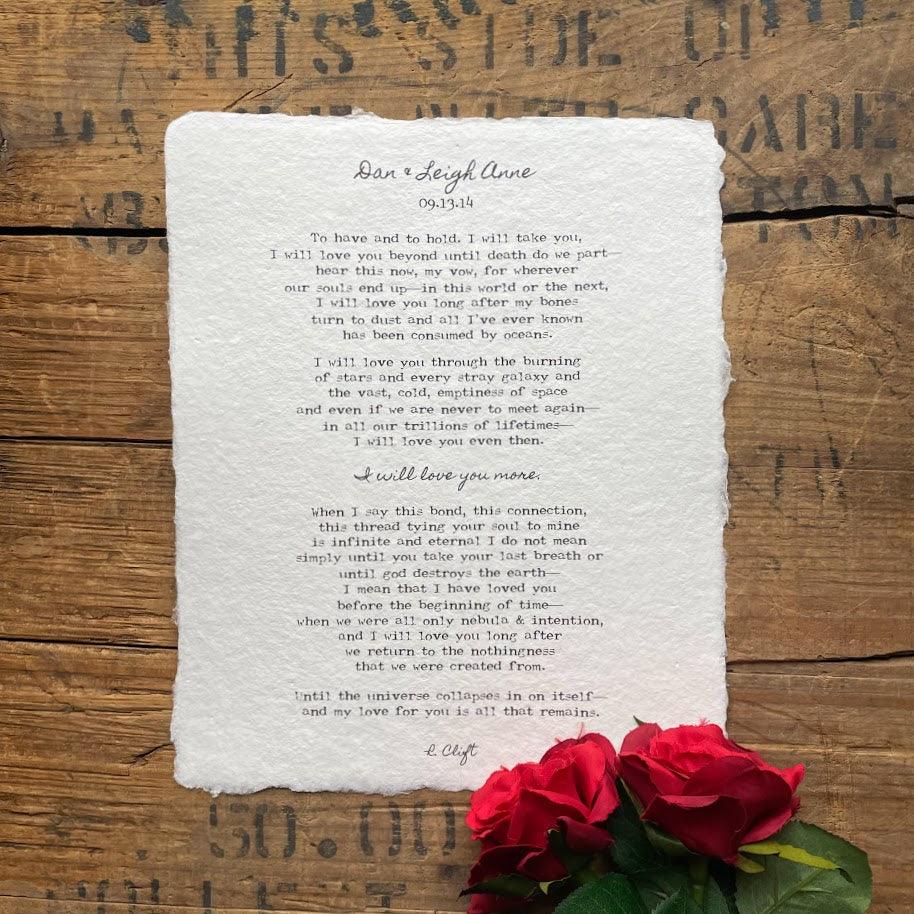 THIS SIDE UP
CARE
Dan & Leigh Anne
09.13.14
To have and to hold. I will take you,
I will love you beyond until death do we part—
hear this now, my vow, for wherever
our souls end up—in this world or the next,
I will love you long after my bones
turn to dust and all I've ever known
has been consumed by oceans.
I will love you through the burning
of stars and every stray galaxy and
the vast, cold, emptiness of space
and even if we are never to meet again—
in all our trillions of lifetimes—
I will love you even then.
I will love you more.
When I say this bond, this connection,
this thread tying your soul to mine
is infinite and eternal I do not mean
simply until you take your last breath or
until god destroys the earth—
I mean that I have loved you
before the beginning of time—
when we were all only nebula & intention,
and I will love you long after
we return to the nothingness
that we were created from.
Until the universe collapses in on itself—
and my love for you is all that remains.
R. Clift
50.00